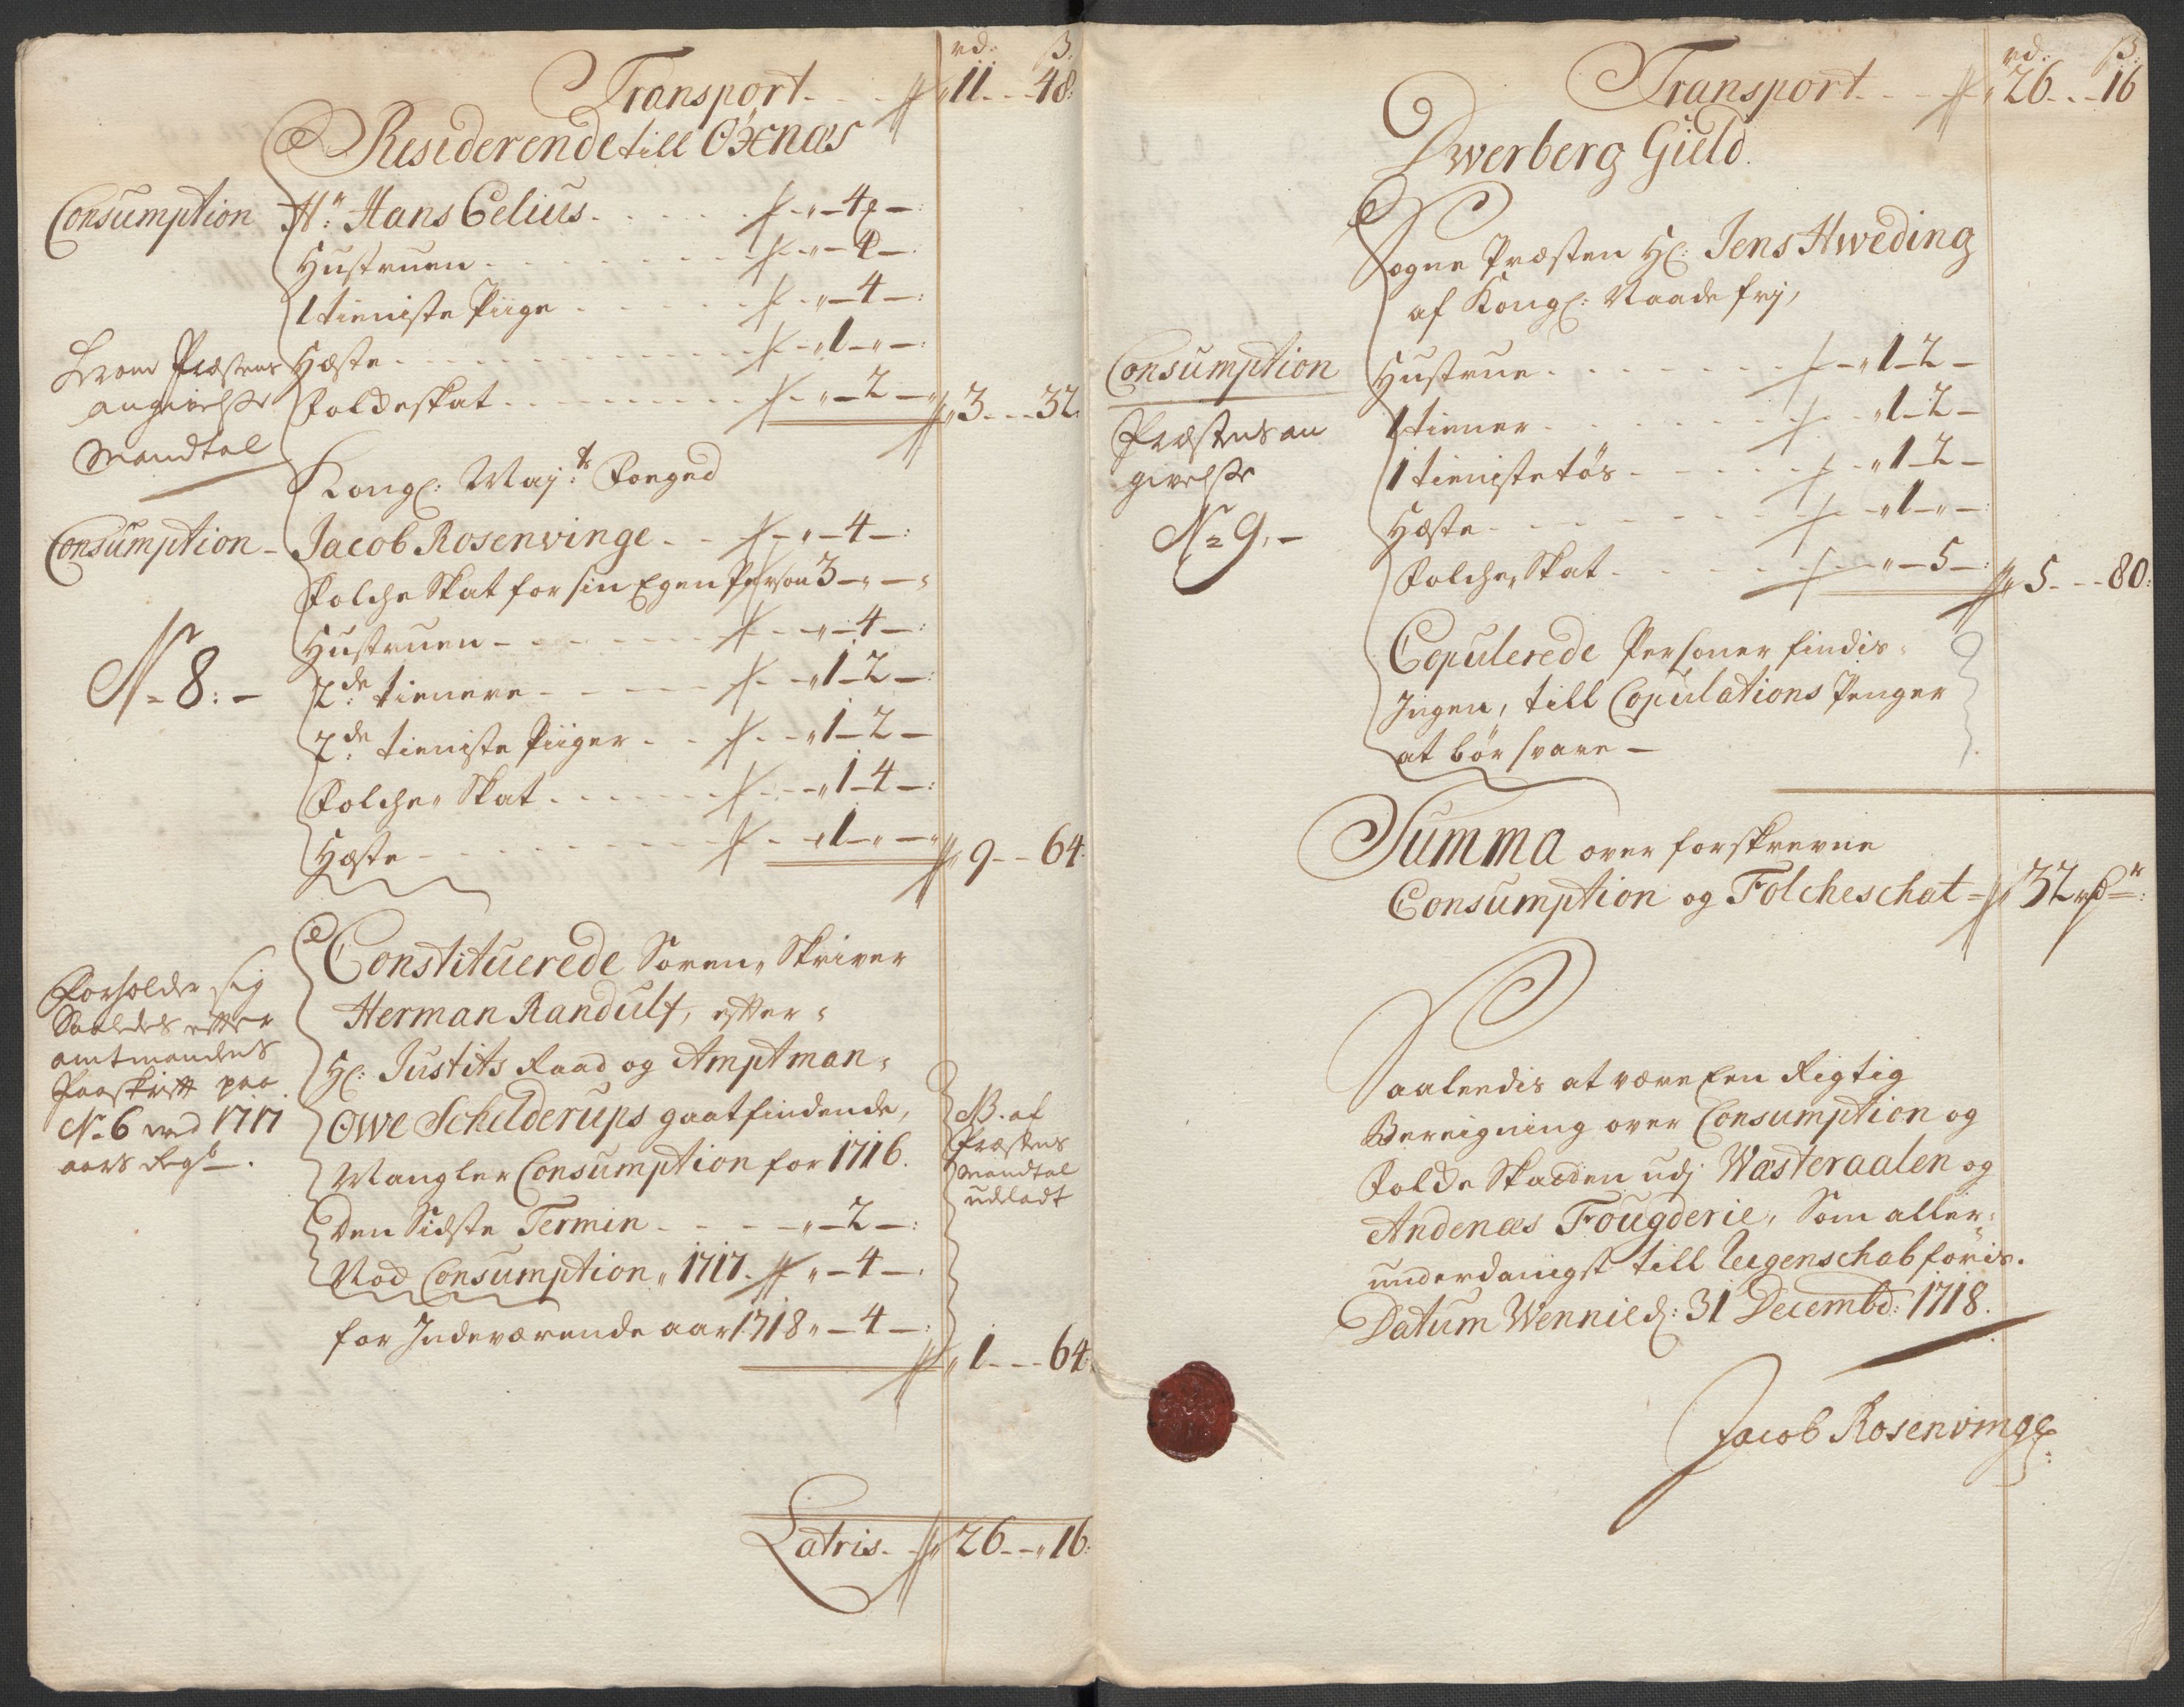 rd: ß.
Transport - - - 11 - - 48:
Residerende till Öxnæs
Consumption Hr: Hans Celius - - - 4 -:
Hustruen - - - 4 -
1 tieniste Piige - - - 4 -:
Hæste - - - 1 - " -:
Præstens
angivelsse
Mandtal
Folcheskat - - - 2 - " 3 - - 32
Kongl: Mayts: Foeged
Consumption - Jacob Rosenvinge - - - 4 -:
Folche Skat for sin Egen Person 3 - " - "
Hustruen - - - 4 -:
No 8: -
2de: tienere - - - 1 - 2 -:
2de: tieniste Piiger - - - 1 - 2 -
Folche Skat - - - 1 - 4 -:
Hæste - - - 1 - " - " 9 - - 64:
Constituerede Soren Skriver
Herman Randulf, efter
Hr: Justits Raad og Amptman
Owe Schelderups gaatfindende,
Mangler Consumption for 1716.
Den Sidste Termin - - - 2 -:
Nod Consumption 1717. " - 4 -.
for Indeværende aar 1718 " - 4 -:
1 - - 64:
Forholder sig
Saaledes efter
amtmandens
Paaskrifft paa
No 6 ved 1717
aars Regb.
NB. af
Præstens
Mandtal
udeladt
Latris - 26 - - 16:
rd: ß:
Transport - - - 26 - - 16
Dwerberg Gield.
Sogne Præsten Hr: Jens Hweding
af Kongl: Naade frj,
Consumption
Hustrue - - - 1 - 2 -
Præstens an
givelsse
No 9. -
1 tiener - - - 1 - 2 -
1 tienistetøs - - - 1 - 2 -
Hæste - - - 1 - " -:
Folche Skat - - - " - 5 -: 5 - - 80:
Copulerede Personer findis
Ingen, till Copulations Penger
at bör svare -
Summa over forskrevne
Consumption og Folcheschat = 32 rdr:
Saaleedis at være Een Rigtig
Bereigning over Consumption og
Folche Skatten udj Wæsteraalen og
Andenæs Fougderie, Som aller=
underdanigst till Regenschab föris.
Datum Wennie d: 31 Decembd: 1718.
Jacob Rosenvinge